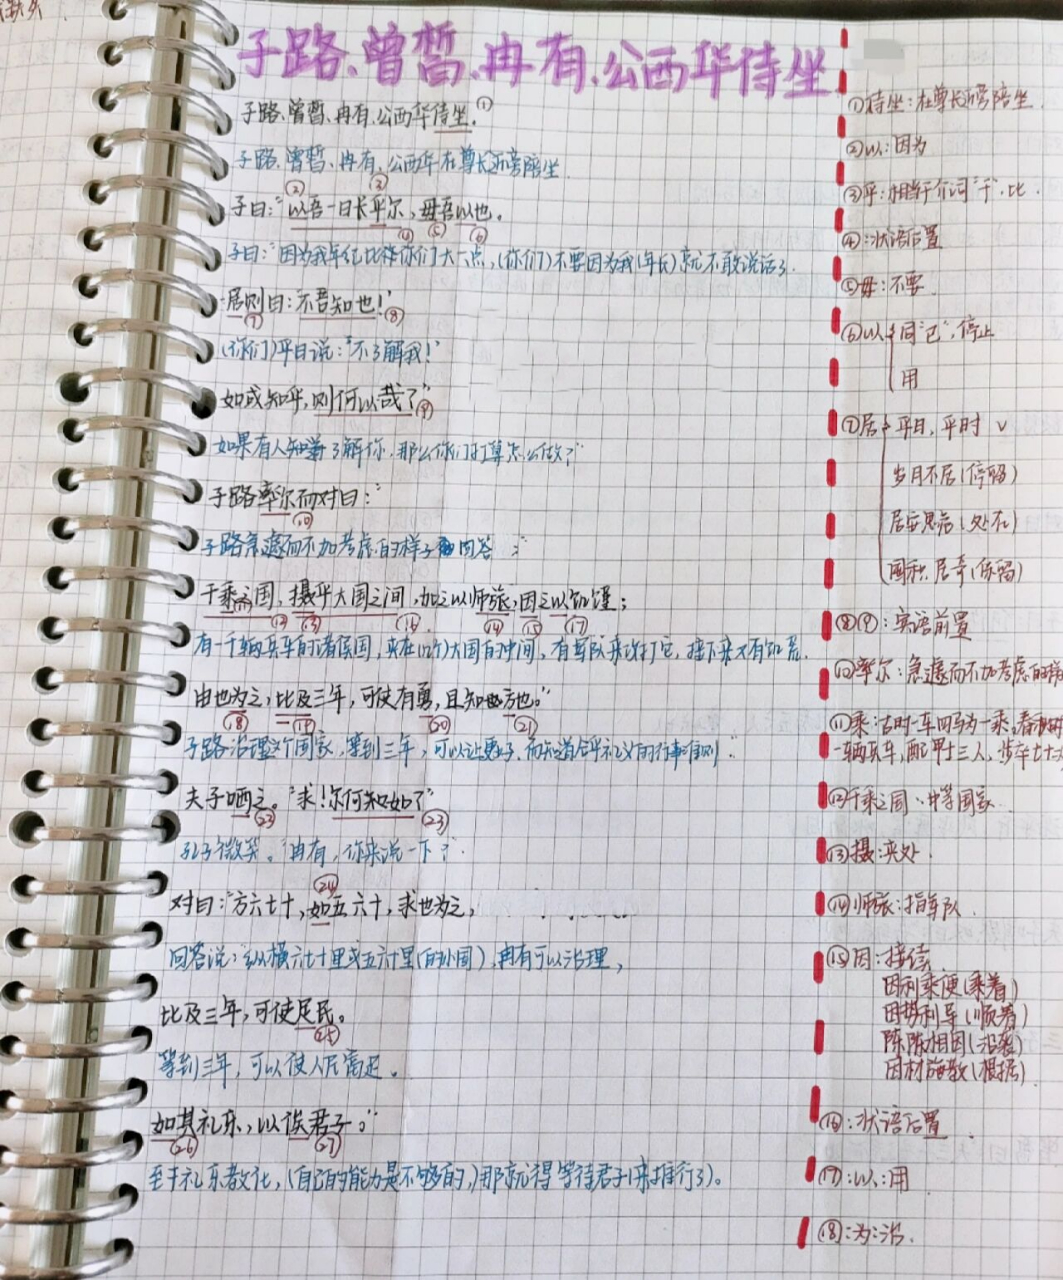 子路、曾晳、冉有、公西华侍坐
子路、曾晳、冉有、公西华侍坐。①
子路、曾晳、冉有、公西华在尊长近旁陪坐
②③
子曰:“以吾一日长乎尔,毋吾以也。
④⑤⑥
子曰:“因为我年纪比你们大一点,(你们)不要因为我(年长)就不敢说话了.
居则曰:不吾知也!’
⑦⑧
(你们)平日说:“不了解我!’
如或知乎,则何以哉?”
⑨
如果有人知道了解你,那么你们打算怎么做?”
子路率尔而对曰:“
⑩
子路急遽而不加考虑的样子回答:“
千乘之国,摄乎大国之间,加之以师旅,因之以饥馑;
⑪⑫⑬⑯⑭⑮⑰
有一千辆兵车的诸侯国,夹在(几个)大国的中间,有军队来攻打它,接下来又有饥荒.
由也为之,比及三年,可使有勇,且知方也。”
⑱⑲⑳㉑
子路治理这个国家,等到三年,可以让更子,而知道合乎礼义的行事准则.”
夫子哂之。“求!尔何知如?”
㉒㉓
孔子微笑。“冉有,你来说一下?”
㉔
对曰:“方六七十,如五六十,求也为之,
回答说:“纵横六七十里或五六十里(的小国),冉有可以治理,
比及三年,可使足民。
㉕
等到三年,可以使人民富足。
如其礼乐,以俟君子。”
㉖㉗
至于礼乐教化,(自己的能力是不够的,)那就得等待君子(来推行了)。
①侍坐:在尊长近旁陪坐.
②以:因为
③乎:相当于介词“于”,比.
④:状语后置
⑤毋:不要.
⑥以 同“已”,停止
用
⑦居 平日,平时 ✓
岁月不居(停留)
居安思危(处在)
囤积居奇(保留)
⑧⑨:宾语前置
⑩率尔:急遽而不加考虑的样
⑪乘:古时一车四马为一乘,春秋时
一辆兵车,配甲士三人,步卒七十二
⑫千乘之国:中等国家
⑬摄:夹处.
⑭师旅:指军队.
⑮因:接续.
因利乘便(乘着)
因势利导(顺着)
陈陈相因(沿袭)
因材施教(根据)
⑯:状语后置.
⑰:以:用
⑱:为:治.